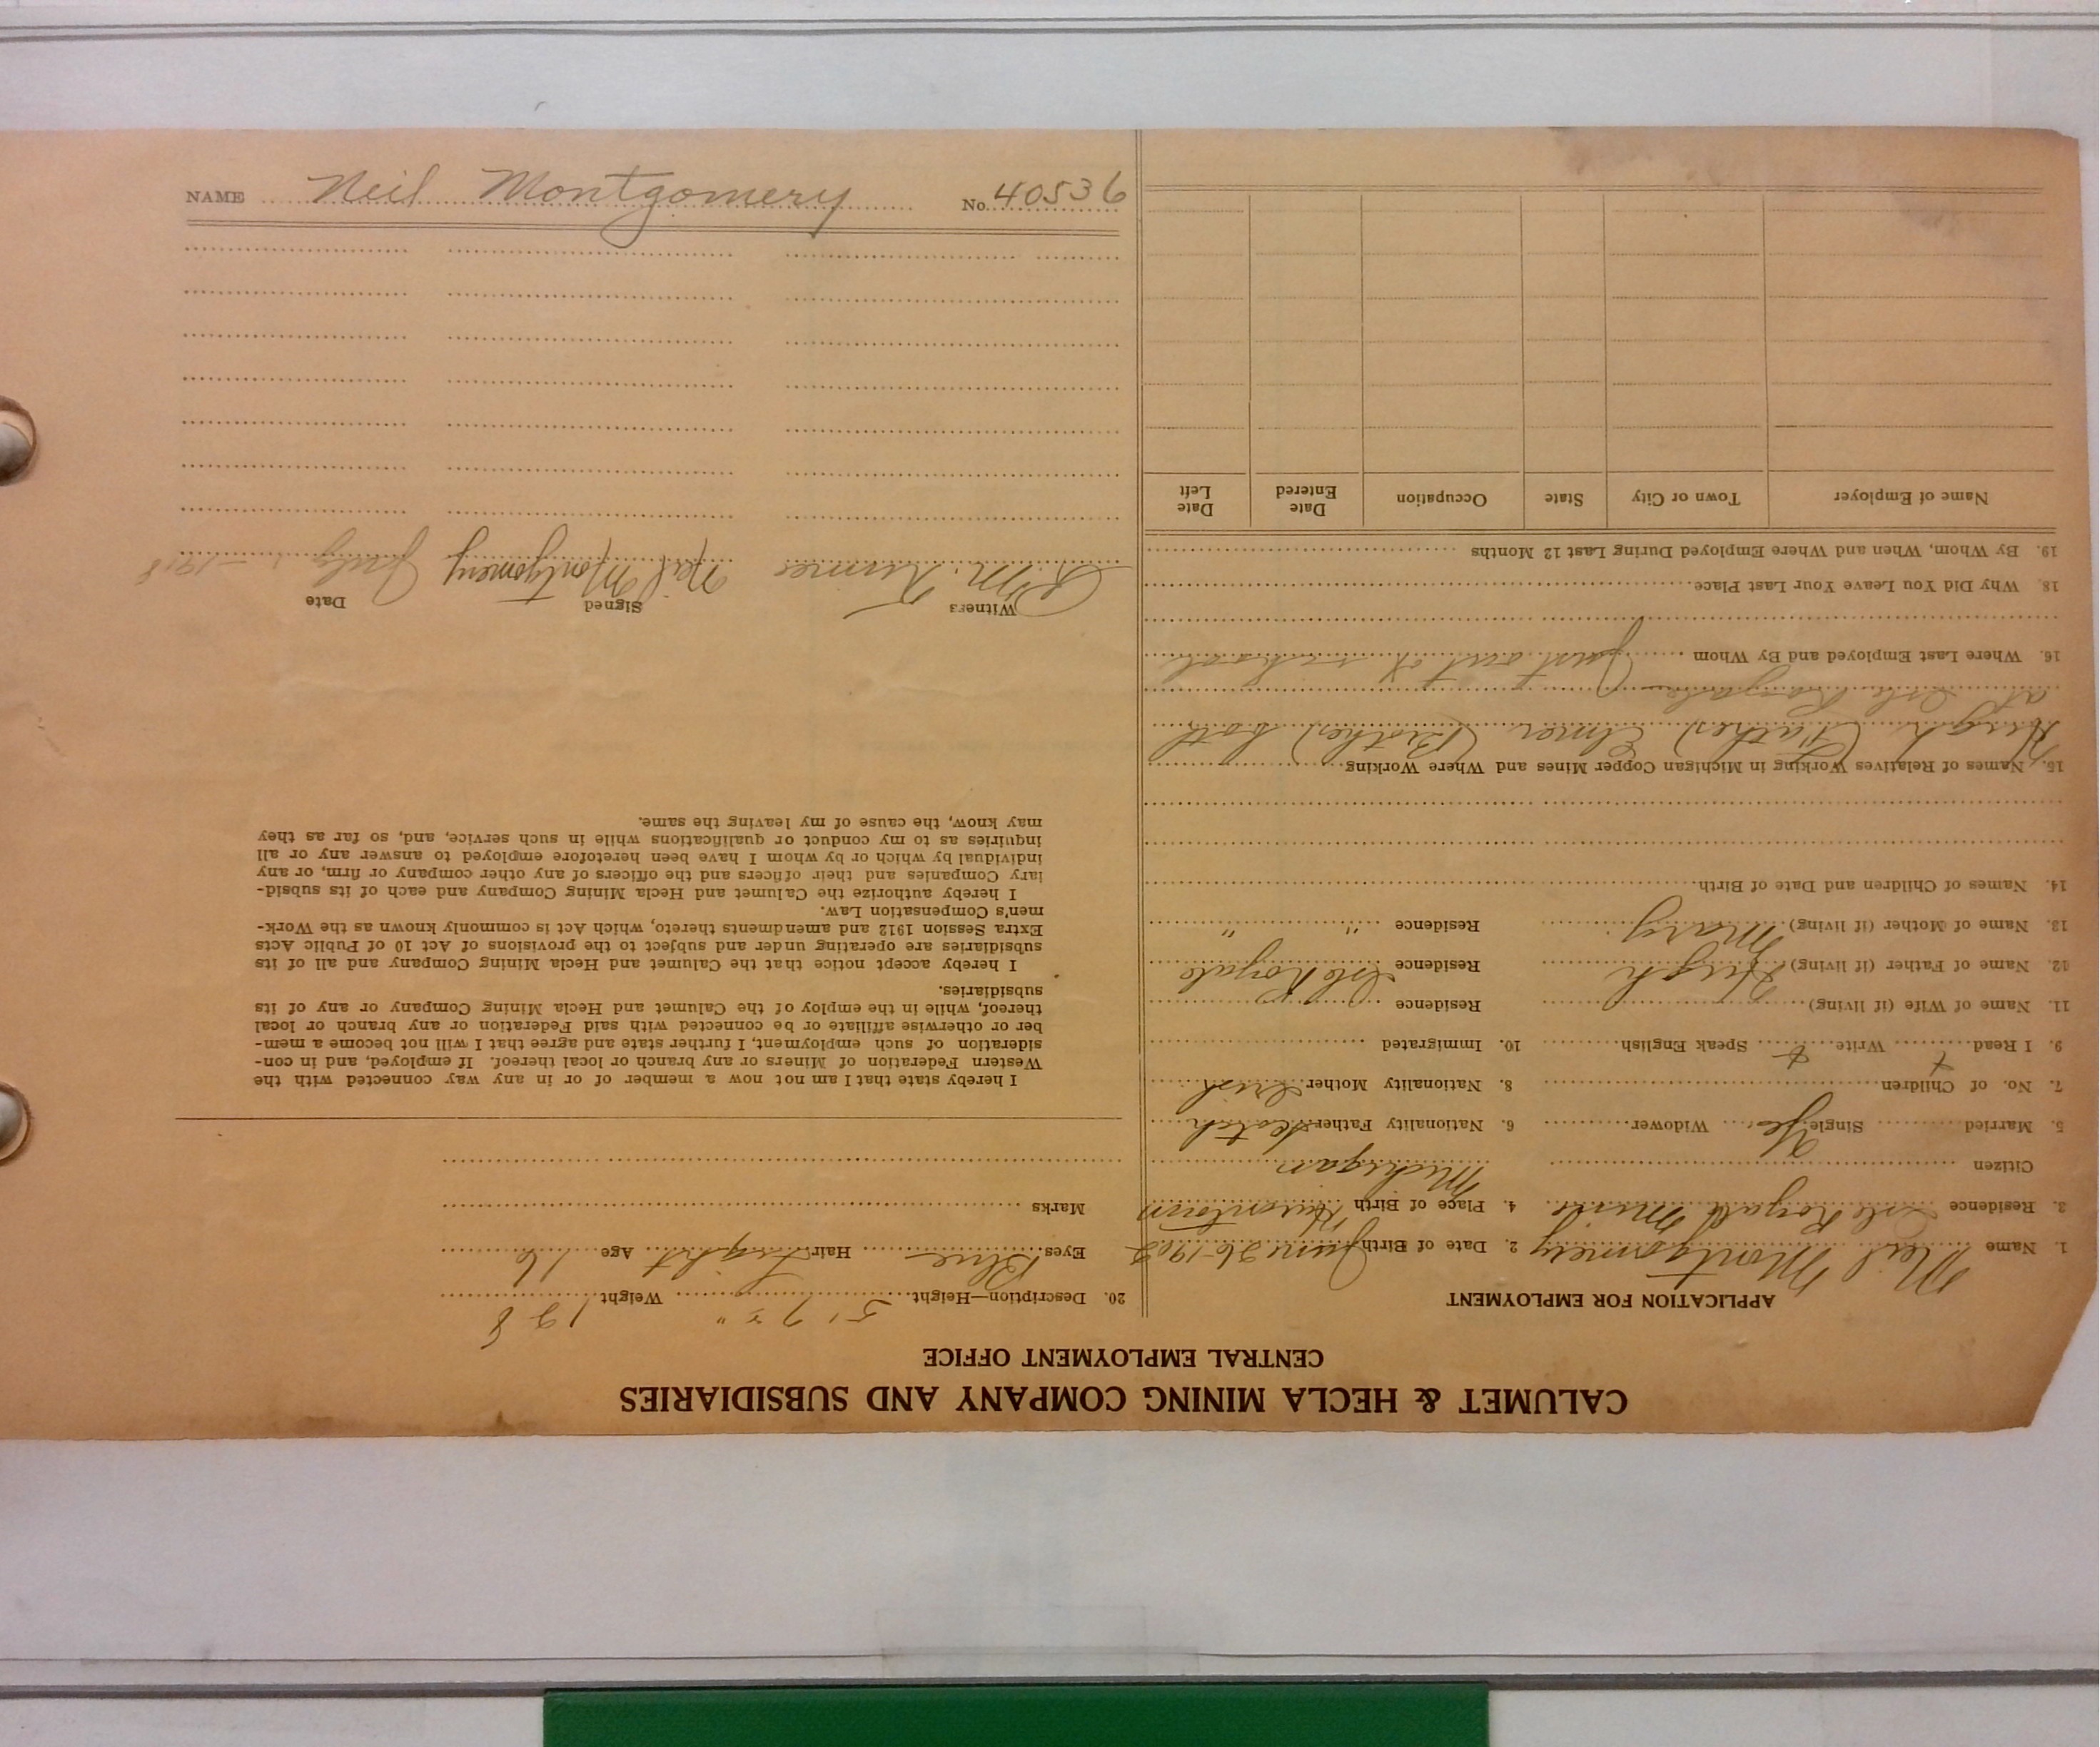 CALUMET & HECLA MINING COMPANY AND SUBSIDIARIES
CENTRAL EMPLOYMENT OFFICE
APPLICATION FOR EMPLOYMENT
1. Name Neil Montgomery 2. Date of Birth June 26-1902
3. Residence Isle Royale Mine. 4. Place of Birth Hurontown
Citizen Michigan
5. Married Single Yes. Widower 6. Nationality Father Scotch
7. No. of Children 8. Nationality Mother Irish
9. I Read Write Speak English 10. Immigrated
11. Name of Wife (if living) Residence
12. Name of Father (if living) Hugh Residence Isle Royale
13. Name of Mother (if living) Mary Residence " "
14. Names of Children and Date of Birth
15. Names of Relatives Working in Michigan Copper Mines and Where Working
Hugh (Father) Elmer (Brother) both
at Isle Royale
16. Where Last Employed and By Whom Just out of school
18. Why Did You Leave Your Last Place
19. By Whom, When and Where Employed During Last 12 Months
Name of Employer Town or City State Occupation Date Entered Date Left
20. Description—Height 5' 7 " Weight 128
Eyes Blue Hair Light Age 16
Marks
I hereby state that I am not now a member of or in any way connected with the
Western Federation of Miners or any branch or local thereof. If employed, and in con-
sideration of such employment, I further state and agree that I will not become a mem-
ber or otherwise affiliate or be connected with said Federation or any branch or local
thereof, while in the employ of the Calumet and Hecla Mining Company or any of its
subsidiaries.
I hereby accept notice that the Calumet and Hecla Mining Company and all of its
subsidiaries are operating under and subject to the provisions of Act 10 of Public Acts
Extra Session 1912 and amendments thereto, which Act is commonly known as the Work-
men's Compensation Law.
I hereby authorize the Calumet and Hecla Mining Company and each of its subsid-
iary Companies and their officers and the officers of any other company or firm, or any
individual by which or by whom I have been heretofore employed to answer any or all
inquiries as to my conduct or qualifications while in such service, and, so far as they
may know, the cause of my leaving the same.
Witness Signed Date
Neil Montgomery July 1-1918
NAME Neil Montgomery No. 40536